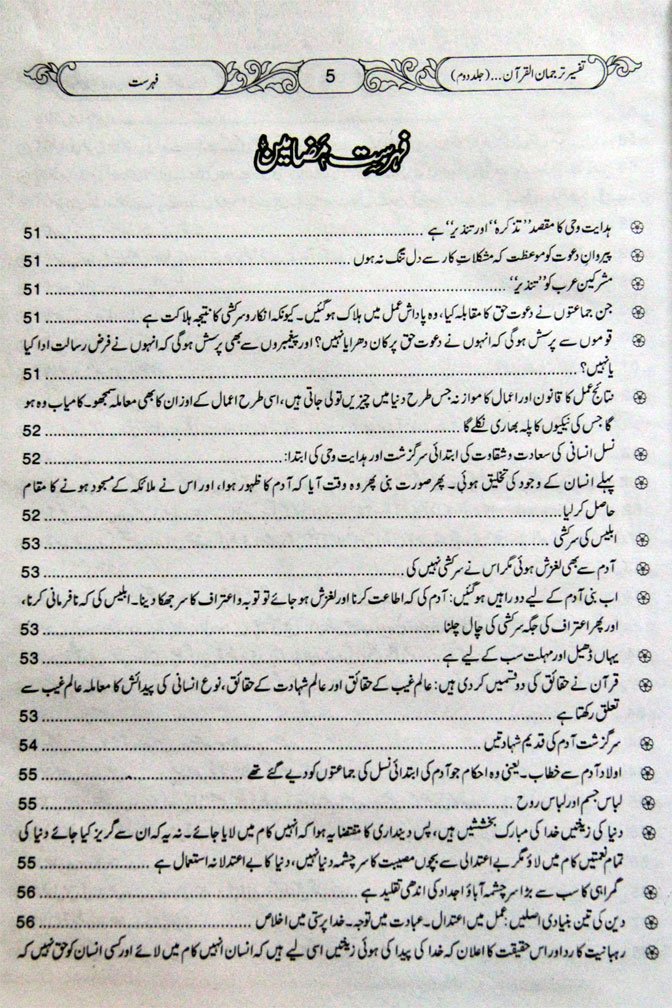 تفسیر ترجمان القرآن...(جلد دوم)
5
فہرست
فہرست مضامین
ہدایت وحی کا مقصد "تذکرہ" اور تنذیر" ہے ........ 51
پیروانِ دعوت کو موعظت کہ مشکلاتِ کار سے دل تنگ نہ ہوں ........ 51
مشرکین عرب کو "تنذیر" ........ 51
جن جماعتوں نے دعوت حق کا مقابلہ کیا، وہ پاداش عمل میں ہلاک ہوگئیں۔ کیونکہ انکار و سرکشی کا نتیجہ ہلاکت ہے ........ 51
قوموں سے پرسش ہوگی کہ انہوں نے دعوت حق پر کان دھرا یا نہیں؟ اور پیغمبروں سے بھی پرسش ہوگی کہ انہوں نے فرض رسالت ادا کیا
یا نہیں؟ ........ 51
نتائج عمل کا قانون اور اعمال کا موازنہ جس طرح دنیا میں چیزیں تولی جاتی ہیں، اسی طرح اعمال کے اوزان کا بھی معاملہ سمجھو۔ کامیاب وہ ہو
گا جس کی نیکیوں کا پلہ بھاری نکلے گا ........ 52
نسل انسانی کی سعادت و شقاوت کی ابتدائی سرگزشت اور ہدایت وحی کی ابتدا: ........ 52
پہلے انسان کے وجود کی تخلیق ہوئی۔ پھر صورت بنی پھر وہ وقت آیا کہ آدم کا ظہور ہوا، اور اس نے ملائکہ کے مسجود ہونے کا مقام
حاصل کر لیا ........ 52
ابلیس کی سرکشی ........ 53
آدم سے بھی لغزش ہوئی مگر اس نے سرکشی نہیں کی ........ 53
اب بنی آدم کے لیے دو راہیں ہوگئیں: آدم کی کہ اطاعت کرنا اور لغزش ہو جائے تو توبہ و اعتراف کا سر جھکا دینا۔ ابلیس کی کہ نافرمانی کرنا،
اور پھر اعتراف کی جگہ سرکشی کی چال چلنا ........ 53
یہاں ڈھیل اور مہلت سب کے لیے ہے ........ 53
قرآن نے حقائق کی دو قسمیں کر دی ہیں: عالم غیب کے حقائق اور عالم شہادت کے حقائق، نوع انسانی کی پیدائش کا معاملہ عالم غیب سے
تعلق رکھتا ہے ........ 53
سرگزشت آدم کی قدیم شہادتیں ........ 54
اولاد آدم سے خطاب۔ یعنی وہ احکام جو آدم کی ابتدائی نسل کی جماعتوں کو دیے گئے تھے ........ 55
لباس جسم اور لباس روح ........ 55
دنیا کی زینتیں خدا کی مبارک بخششیں ہیں، پس دینداری کا مقتضا یہ ہوا کہ انہیں کام میں لایا جائے۔ نہ یہ کہ ان سے گریز کیا جائے دنیا کی
تمام نعمتیں کام میں لاؤ مگر بے اعتدالی سے بچوں مصیبت کا سرچشمہ دنیا نہیں، دنیا کا بے اعتدلانہ استعمال ہے ........ 55
گمراہی کا سب سے بڑا سرچشمہ آباؤ اجداد کی اندھی تقلید ہے ........ 56
دین کی تین بنیادی اصلیں: عمل میں اعتدال۔ عبادت میں توجہ۔ خدا پرستی میں اخلاص ........ 56
رہبانیت کا رد اور اس حقیقت کا اعلان کہ خدا کی پیدا کی ہوئی زینتیں اسی لیے ہیں کہ انسان انہیں کام میں لائے اور کسی انسان کو حق نہیں کہ